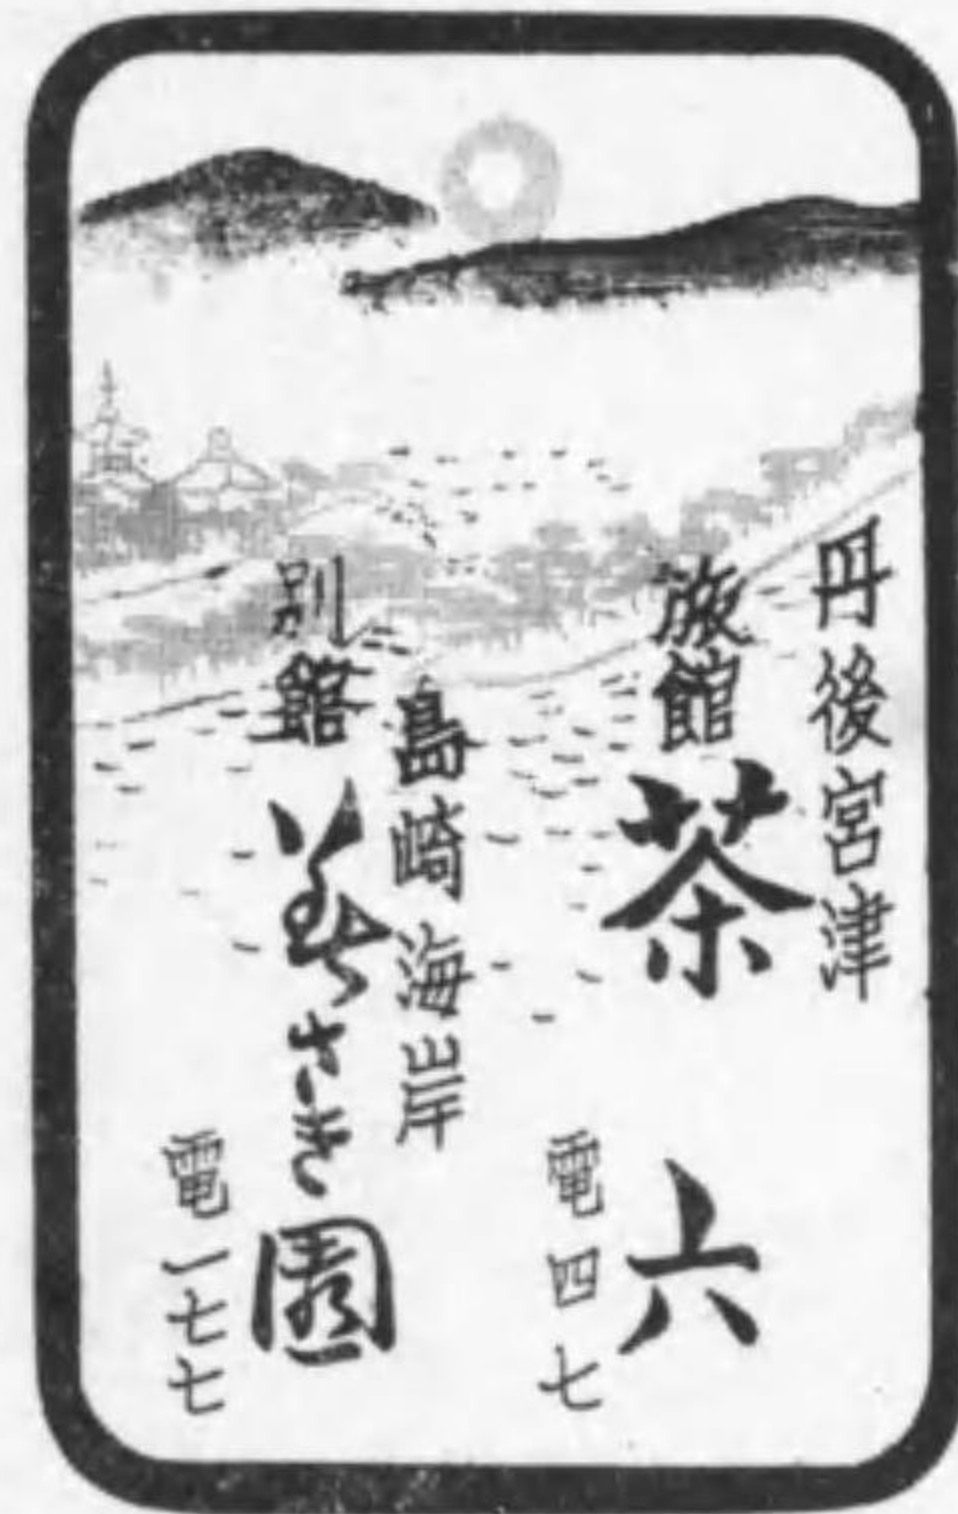 丹後宮津
旅館 茶六
電四七
島崎海岸
別館 美さき園
電一七七